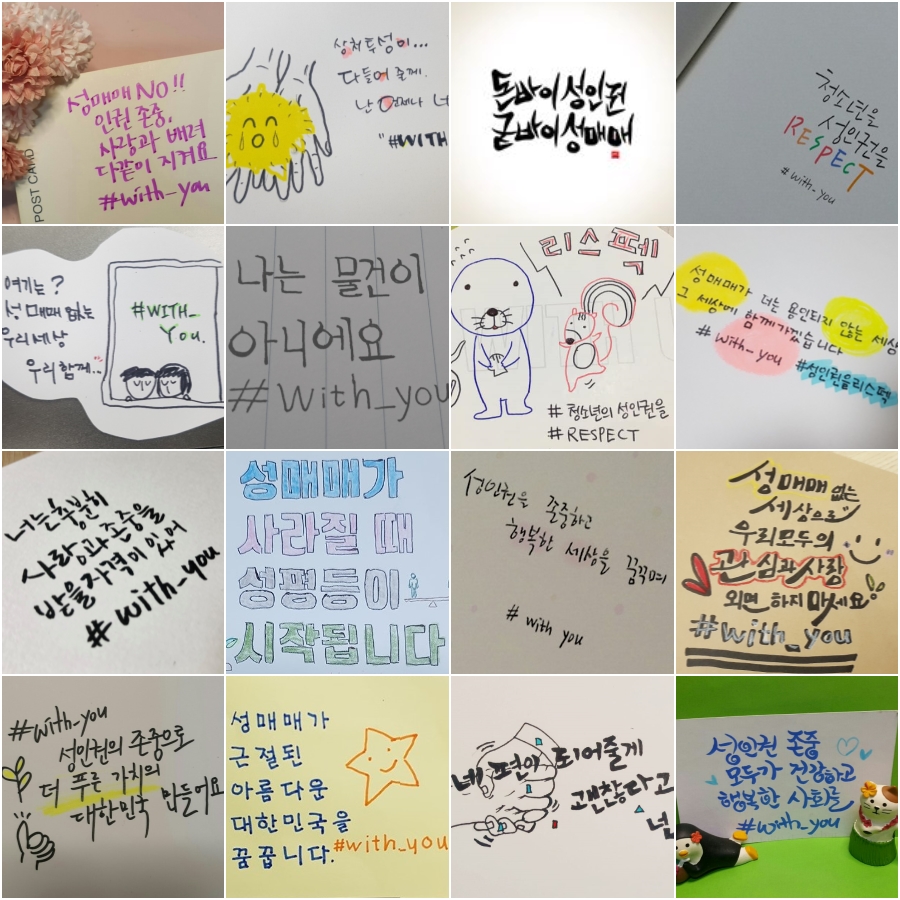 성매매 NO!!
인권 존중,
사랑과 배려
다같이 지켜요
#with_you
POST CARD
상처투성이...
다 들어 줄게.
난 언제나 너
"#WITH
돈바이성인권
굳바이성매매
청소년을
성인권을
RESPECT
#with_you
여기는?
성매매 없는
우리세상
우리함께...
#WITH_
YOU.
나는 물건이
아니에요
#with_you
리스펙
WITH YOU
#청소년의 성인권을
#RESPECT
성매매가 너는 용인되지 않는 세상
그 세상에 함께 가겠습니다
#with_you
#성인권을리스펙
너는 충분히
사랑과 존중을
받을 자격이 있어
#with_you
성매매가
사라질 때
성평등이
시작됩니다
성인권을 존중하고
행복한 세상을 꿈꾸며
#with you
성매매 없는
세상으로
우리모두의
관심과 사랑
외면 하지 마세요
#with_you
#with_you
성인권의 존중으로
더 푸른 가치의
대한민국 만들어요
성매매가
근절된
아름다운
대한민국을
꿈꿉니다.#with_you
네 편이 되어줄게
괜찮다고
넌
성인권 존중
모두가 건강하고
행복한 사회를
#with_you